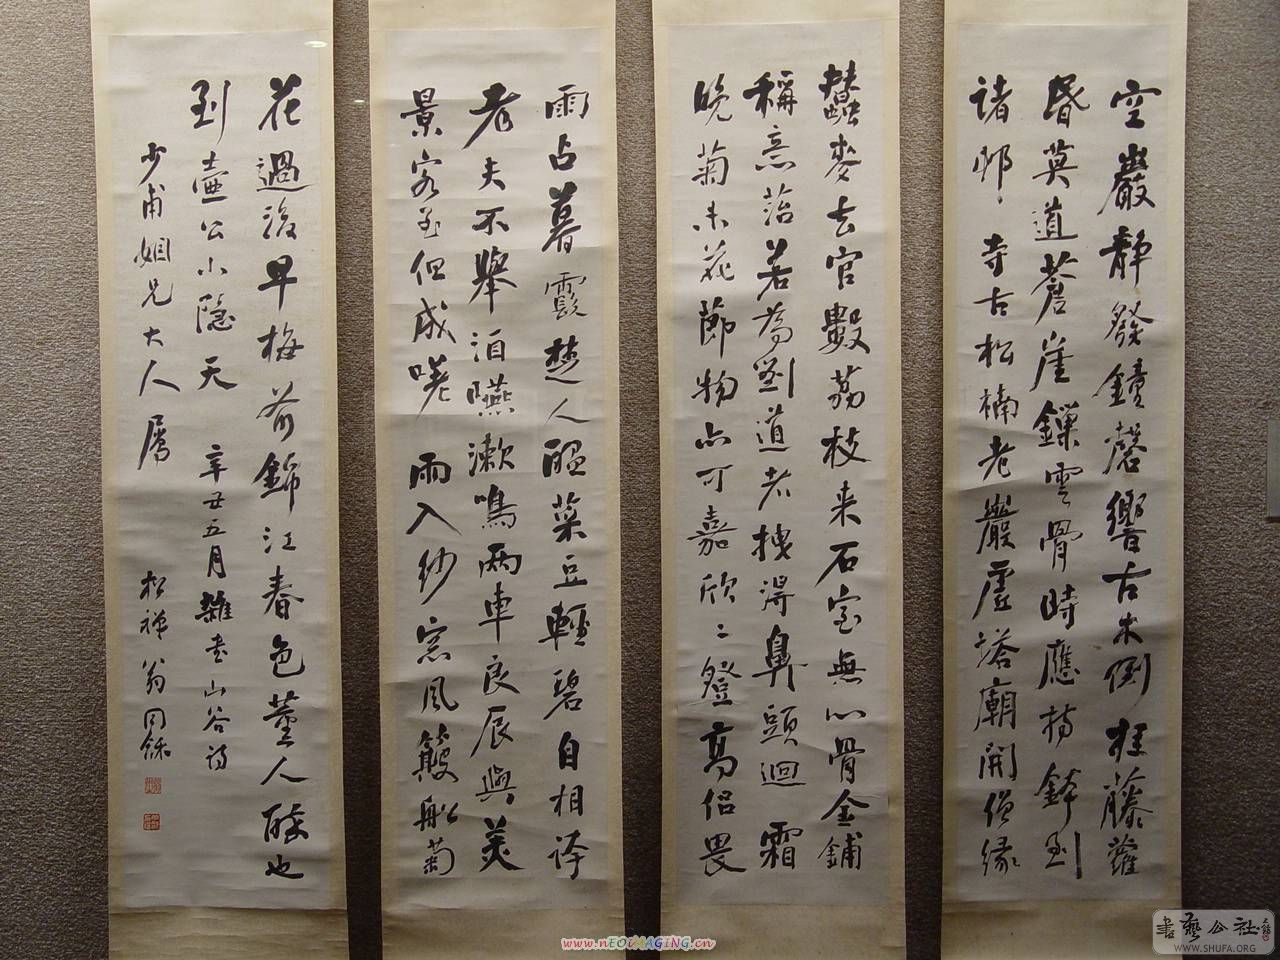 空巖靜發鐘磬響古木倒挂藤蘿
昏莫道蒼崖鏁雲骨時應持鉢到
諸邨 寺古松楠老巖虛塔廟開僧緣
蠶麥去官數荔枝来石室無心骨金鋪
稱意苔若為劉道者拽得鼻頭迴 霜
晚菊未花節物亦可嘉欣〻登高侣畏
雨占暮霞楚人醖菉豆輕碧自相誇
老夫不舉酒嚥漱鳴兩車良辰與美
景客至但成嗟 雨入紗窓風簸船菊
花過後早梅前錦江春色薰人醉也
到壺公小隱天 辛丑五月雜書山谷詩
少甫姻兄大人屬 松禪翁同龢
www.nEOiMAGING.cn
書藝公社
WWW.SHUFA.ORG